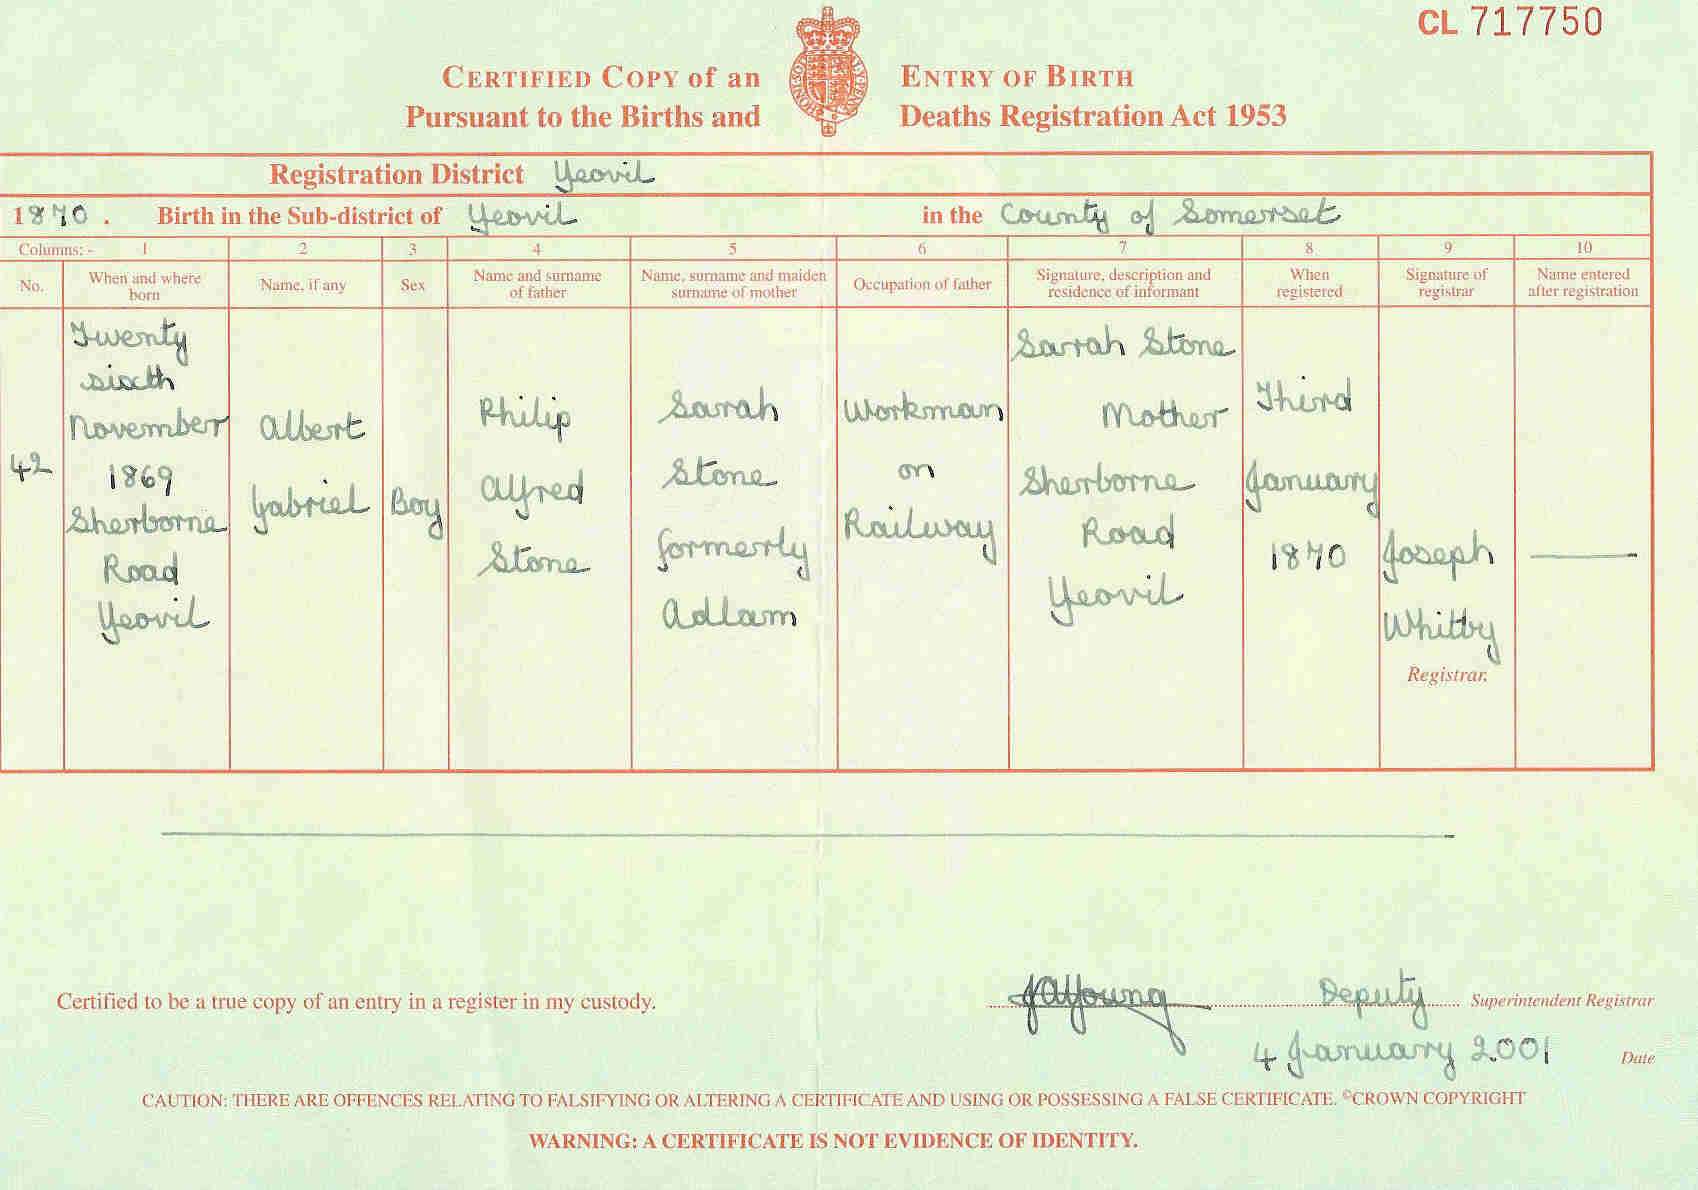 CL 717750
CERTIFIED COPY of an ENTRY OF BIRTH
Pursuant to the Births and Deaths Registration Act 1953
Registration District Yeovil
1870. Birth in the Sub-district of Yeovil in the County of Somerset
Columns:- 1 2 3 4 5 6 7 8 9 10
No.
When and where
born
Name, if any
Sex
Name and surname
of father
Name, surname and maiden
surname of mother
Occupation of father
Signature, description and
residence of informant
When
registered
Signature of
registrar
Name entered
after registration
42
Twenty
sixth
November
1869
Sherborne
Road
Yeovil
Albert
Gabriel
Boy
Philip
Alfred
Stone
Sarah
Stone
formerly
Adlam
Workman
on
Railway
Sarah Stone
Mother
Sherborne
Road
Yeovil
Third
January
1870
Joseph
Whitby
Registrar.
Certified to be a true copy of an entry in a register in my custody.
JAYoung Deputy Superintendent Registrar
4 January 2001 Date
CAUTION: THERE ARE OFFENCES RELATING TO FALSIFYING OR ALTERING A CERTIFICATE AND USING OR POSSESSING A FALSE CERTIFICATE. ©CROWN COPYRIGHT
WARNING: A CERTIFICATE IS NOT EVIDENCE OF IDENTITY.